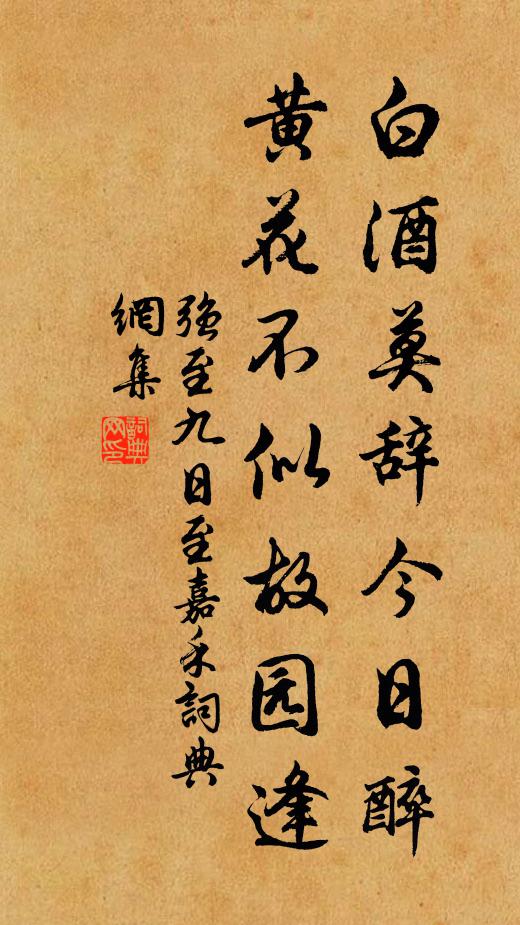 白酒莫辞今日醉
黄花不似故园逢
強至九日至嘉禾詞典
網集
詞典
网印